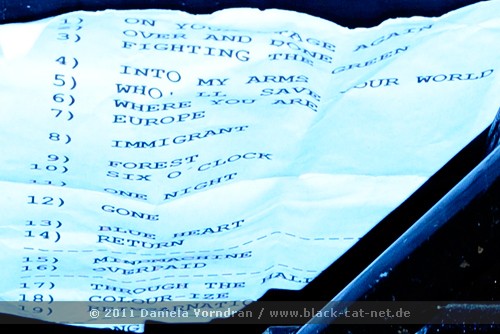 1) ON STAGE AGAIN
2) OVER AND DONE
3) FIGHTING THE GREEN
4) INTO MY ARMS
5) WHO'LL SAVE YOUR WORLD
6) WHERE YOU ARE
7) EUROPE
8) IMMIGRANT
9) FOREST
10) SIX O'CLOCK
ONE NIGHT
12) GONE
13) BLUE HEART
14) RETURN
15) MIND MACHINE
16) OVERPAID
17) THROUGH THE
18) COLOUR-IZE
19)
© 2011 Daniela Vorndran / www.black-cat-net.de